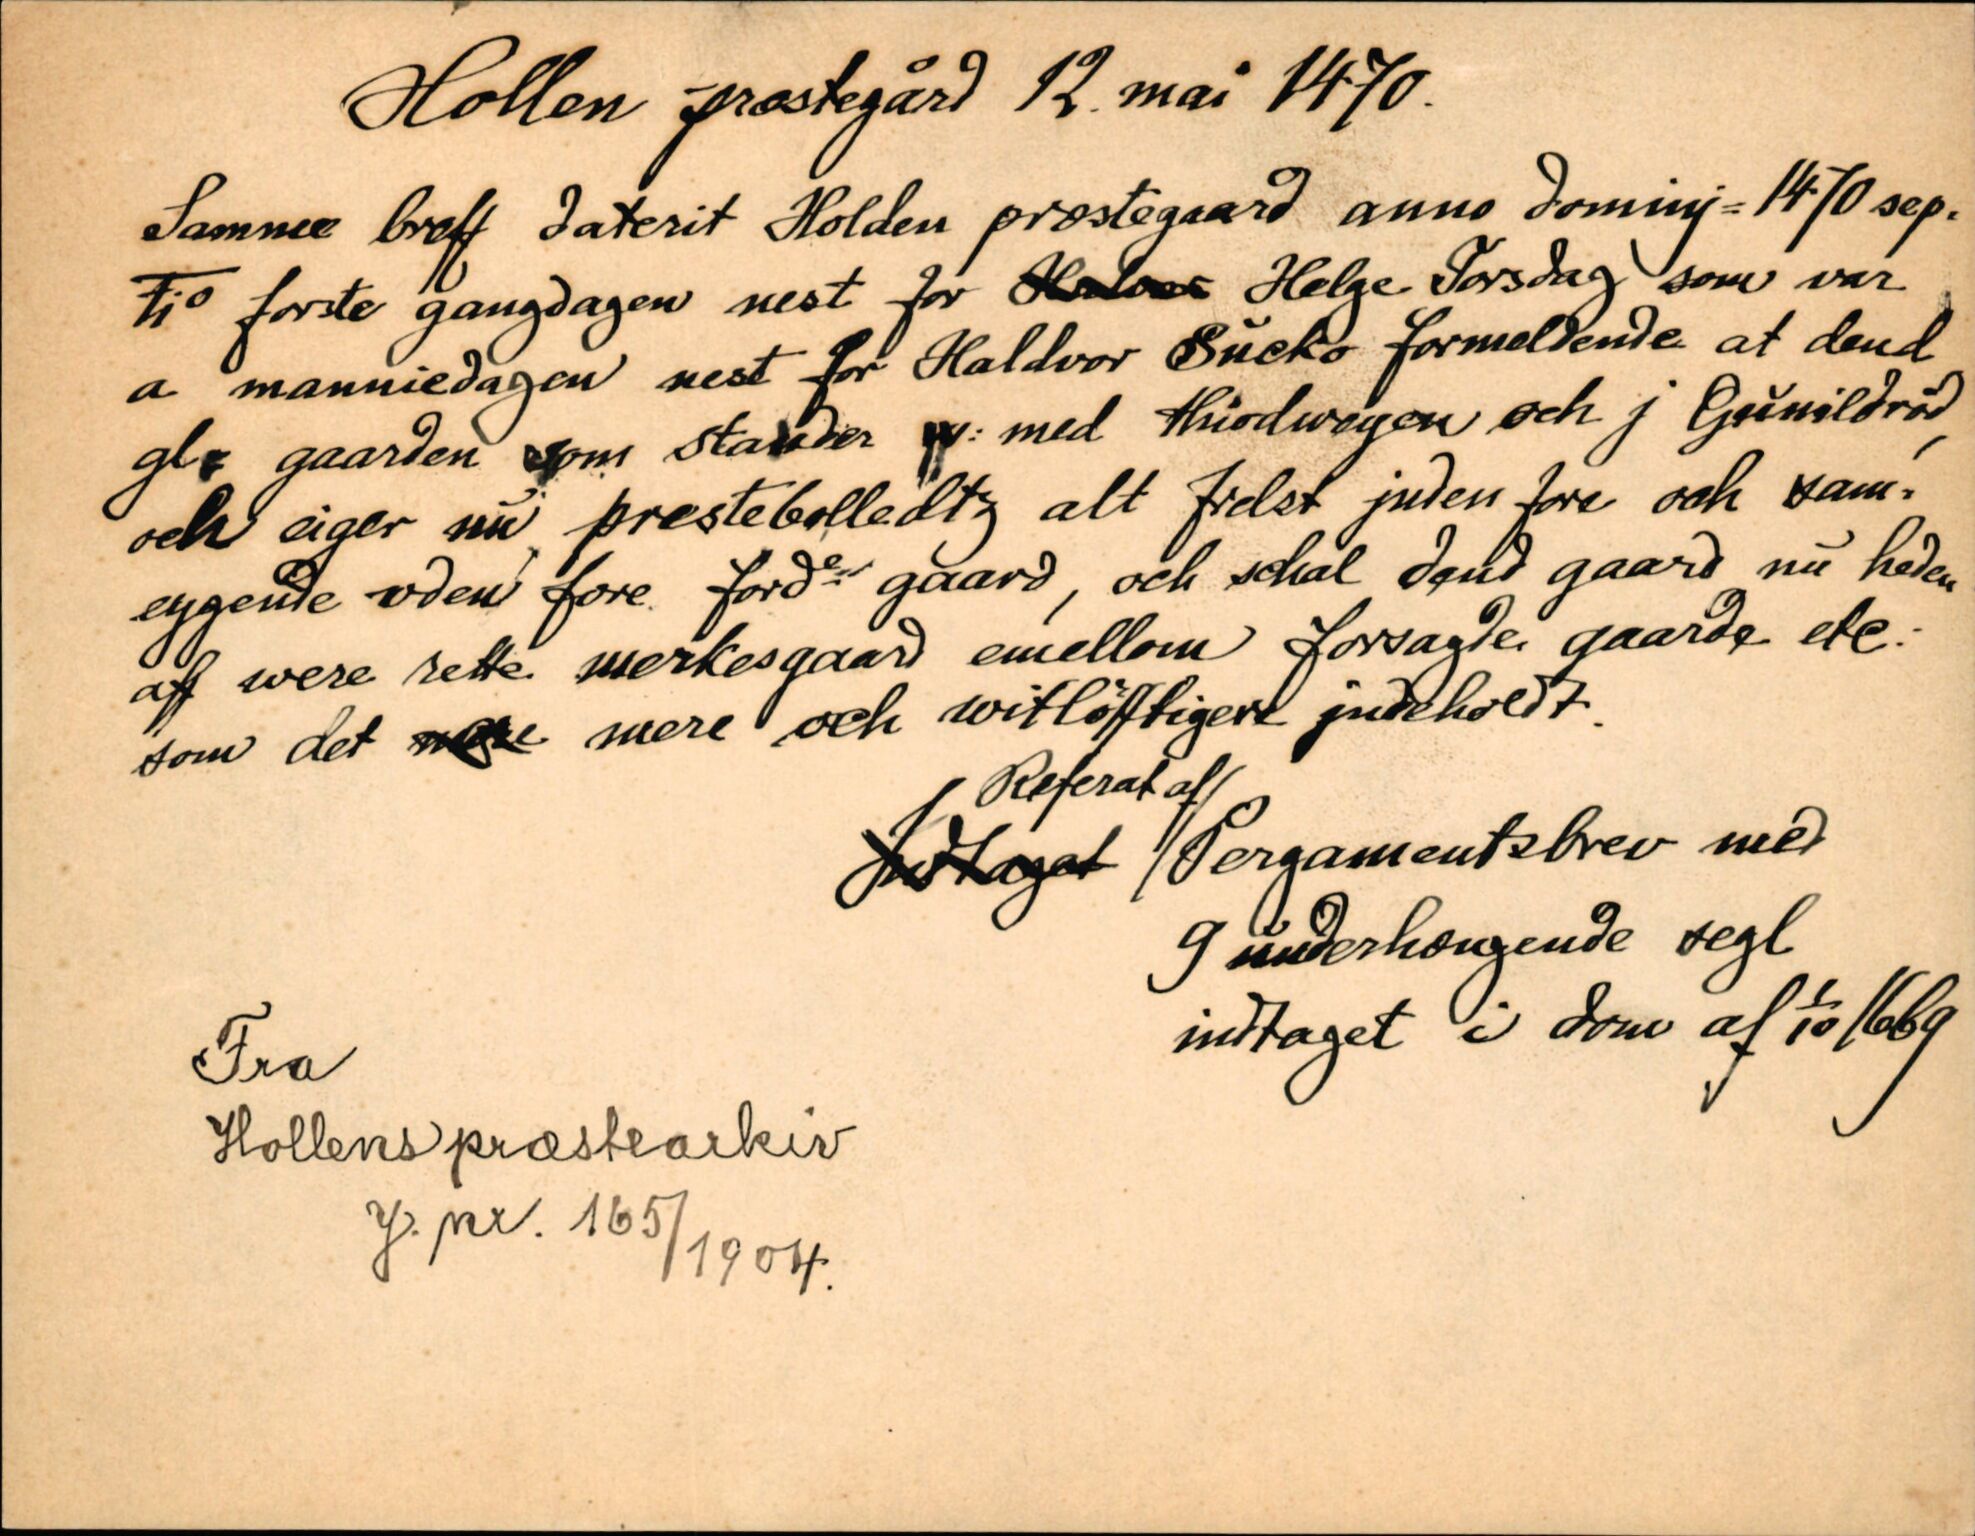 Hollen præstegård 12. mai 1470.
Samme breff daterit Holden præstegaard anno dominj = 1470 sep-
tio forste gangdagen nest for Helge Torsdag som var
a manniedagen nest for Haldvor Sucko formeldende at dend
gl. gaarden som stander med Hüodwegen och j Gunildröd
och eiger nu prestebolledtz alt frelst jnden fore och sam-
eygende vden fore ford: gaard, och schal dend gaard nu heden
aff were rette merkesgaard emellom forsagde gaarde etc:
som det mere och witlöfftigere jndeholdt.
Referat af
Indtaget Pergamentsbrev med
9 underhængende segl
indtaget i dom af 1/10 1669
Fra
Hollens præstearkiv
J. nr. 165/1904.